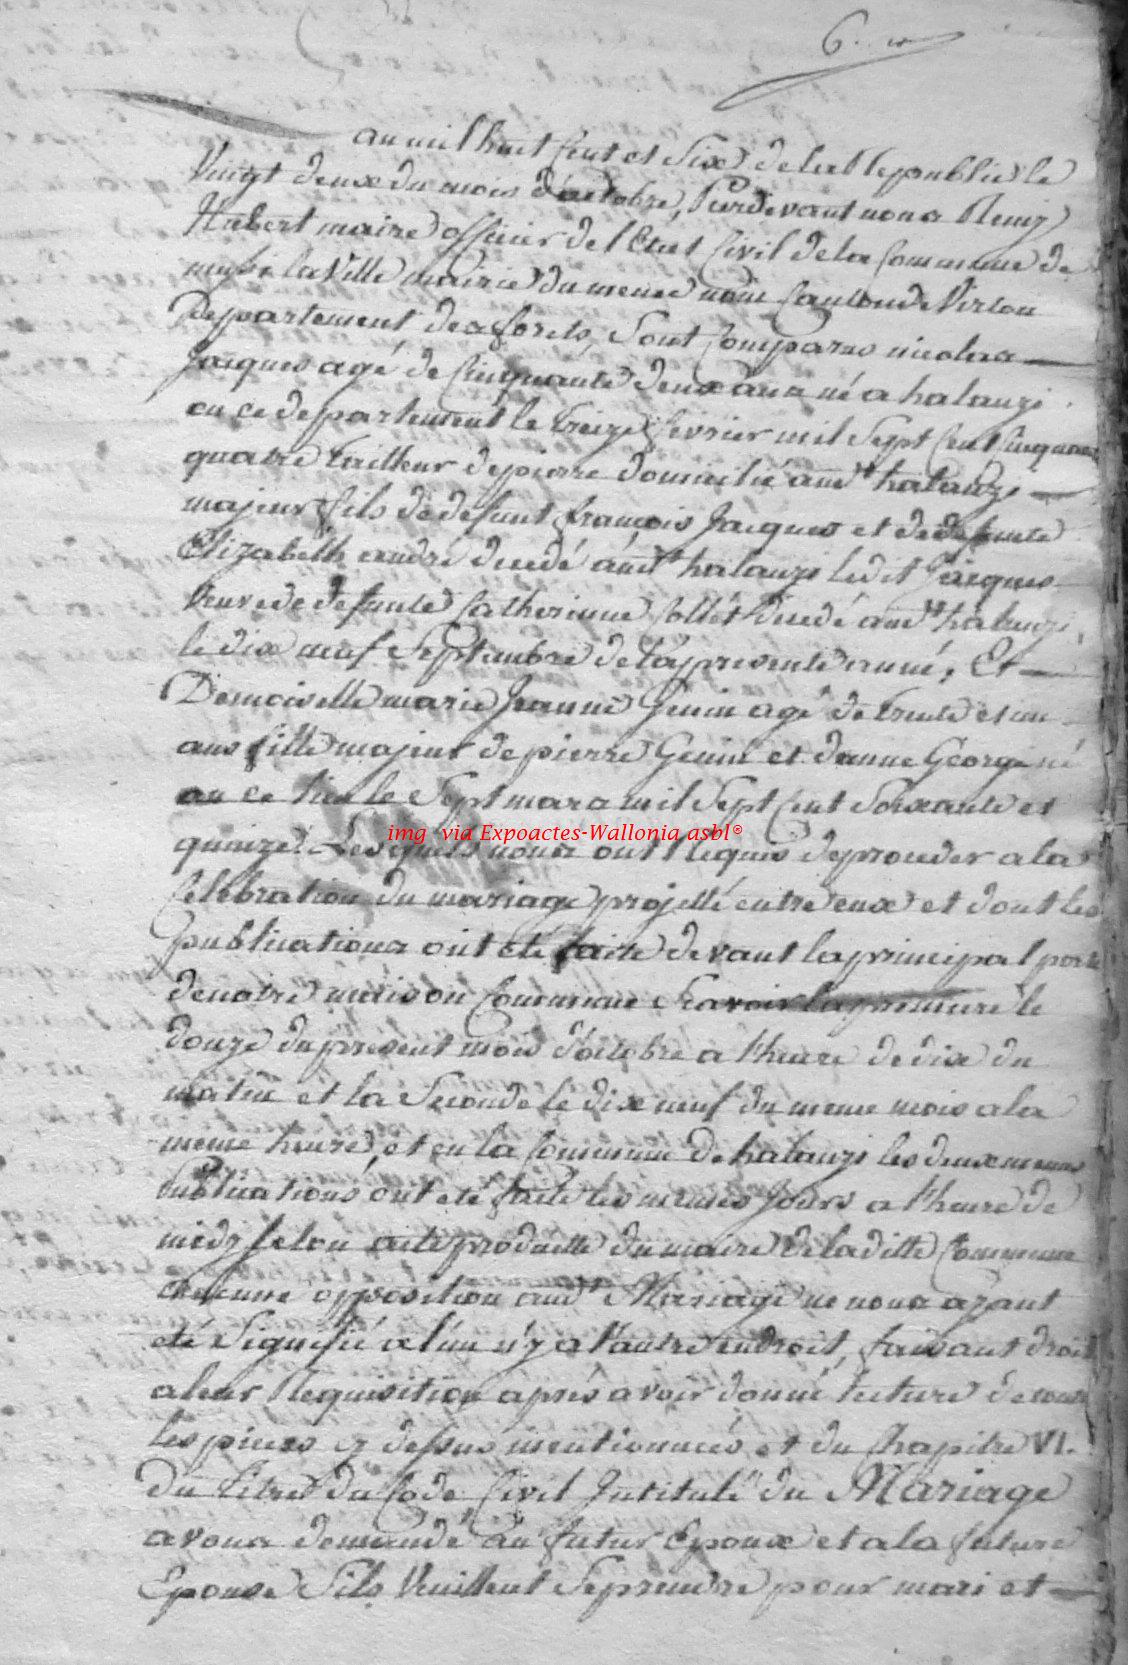 6.
an mil huit Cent et Six de la Republic le
Vingt deux du mois d'octobre, Pardevant nous Remy
Hubert maire officier de l'Etat Civil de la Commune de
mussi la Ville mairie du meme nom Canton de Virton
Departement des forets, Sont Comparus nicolas
Jacques agé de Cinquante deux ans né a halanzi
en ce departement le treize fevrier mil Sept Cent Cinquante
quatre tailleur de pierre domicilié aud.t halanzi
majeur fils de defunt françois Jacques et de defunte
Elizabeth andre decedé aud.t halanzi ledit Jacques
Veuve de defunte Catherinne Collet decedé aud.t halanzi
le dix neuf Septembre de la presente anné, Et
Demoiselle marie Jeanne Genin agé de trente et un
ans fille majeur de pierre Genin et danne George né
en ce lieu le Sept mars mil Sept Cent Soixante et
img via Expoactes-Wallonia asbl®
quinze. Lesquels nous ont Requis de proceder a la
Celebration du mariage projetté entre eux et dont les
publications ont eté faite devant la principal porte
de notre maison Commune Scavoir la premiere le
douze du present mois d'octobre a l'heure de dix du
matin et la Seconde le dix neuf du meme mois a la
meme heure, et en la Commune de halanzi les deux memes
publications ont eté faite les memes Jours a l'heure de
midy selon acte produitte du maire de laditte Commune
aucunne opposition aud.t Mariage ne nous ayant
eté Signifié a l'un n'y a l'autre endroit, faisant droit
a leur Requisition aprés avoir donné lecture de toutes
les pieces cy dessus mentionnées et du Chapitre VI.
du titre du Code Civil Intitulé du Mariage
avons demandé au futur Epoux et a la future
Epouse Sils Veuillent Se prendre pour mari et